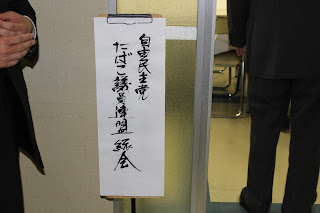 自由民主党
たばこ議員連盟 総会